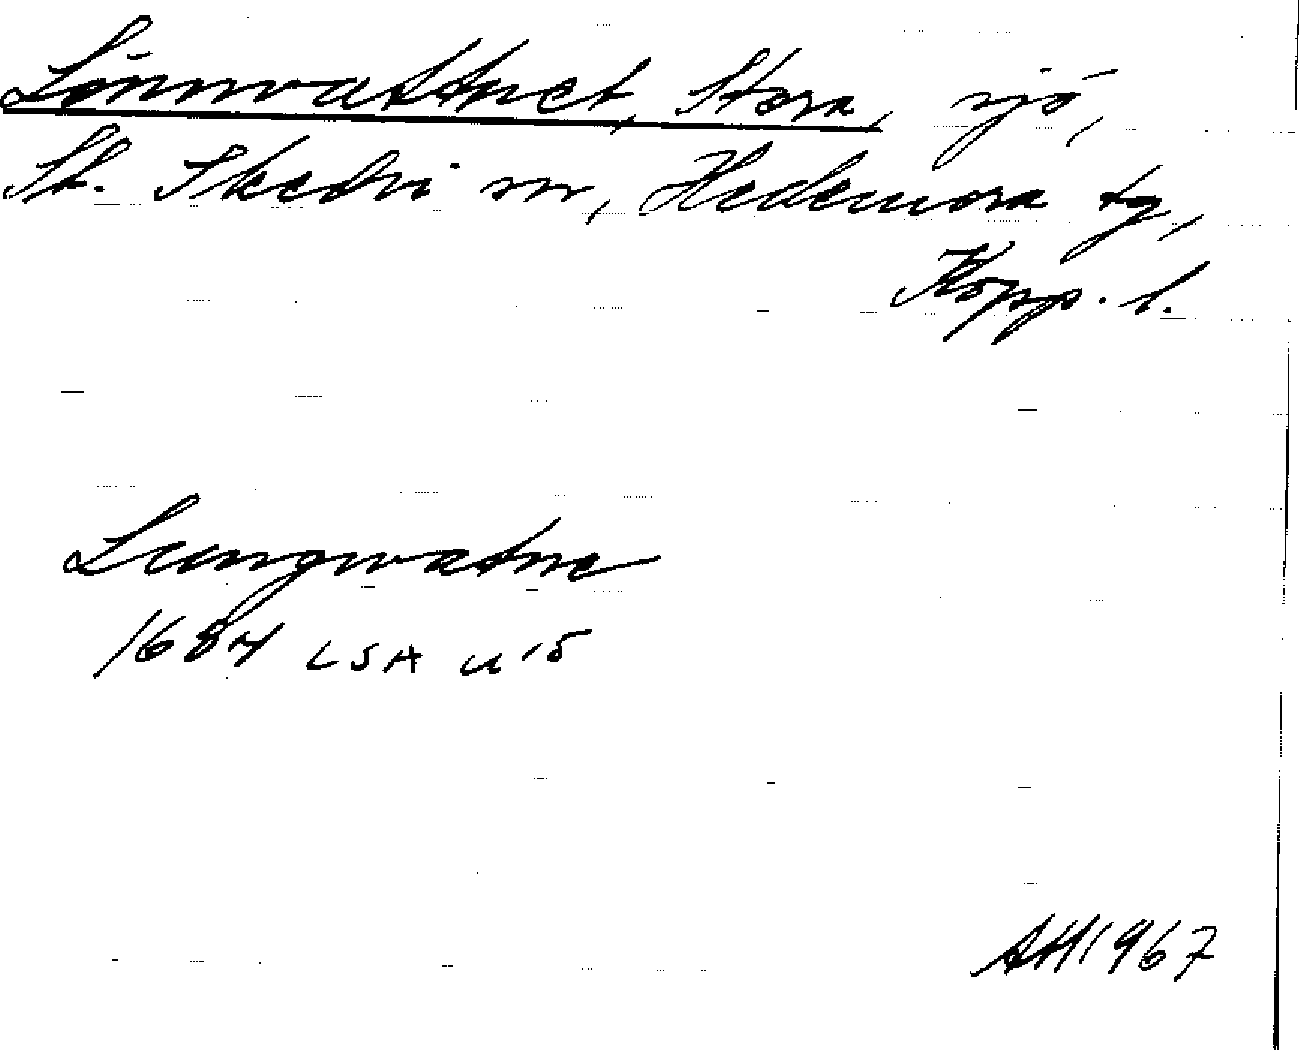 Lönnvattnet, Stora, sjö,
St. Skedvi sn, Hedemora tg,
Kopp. l.
Lungwatne
1684 LSA U 15
AH 1967